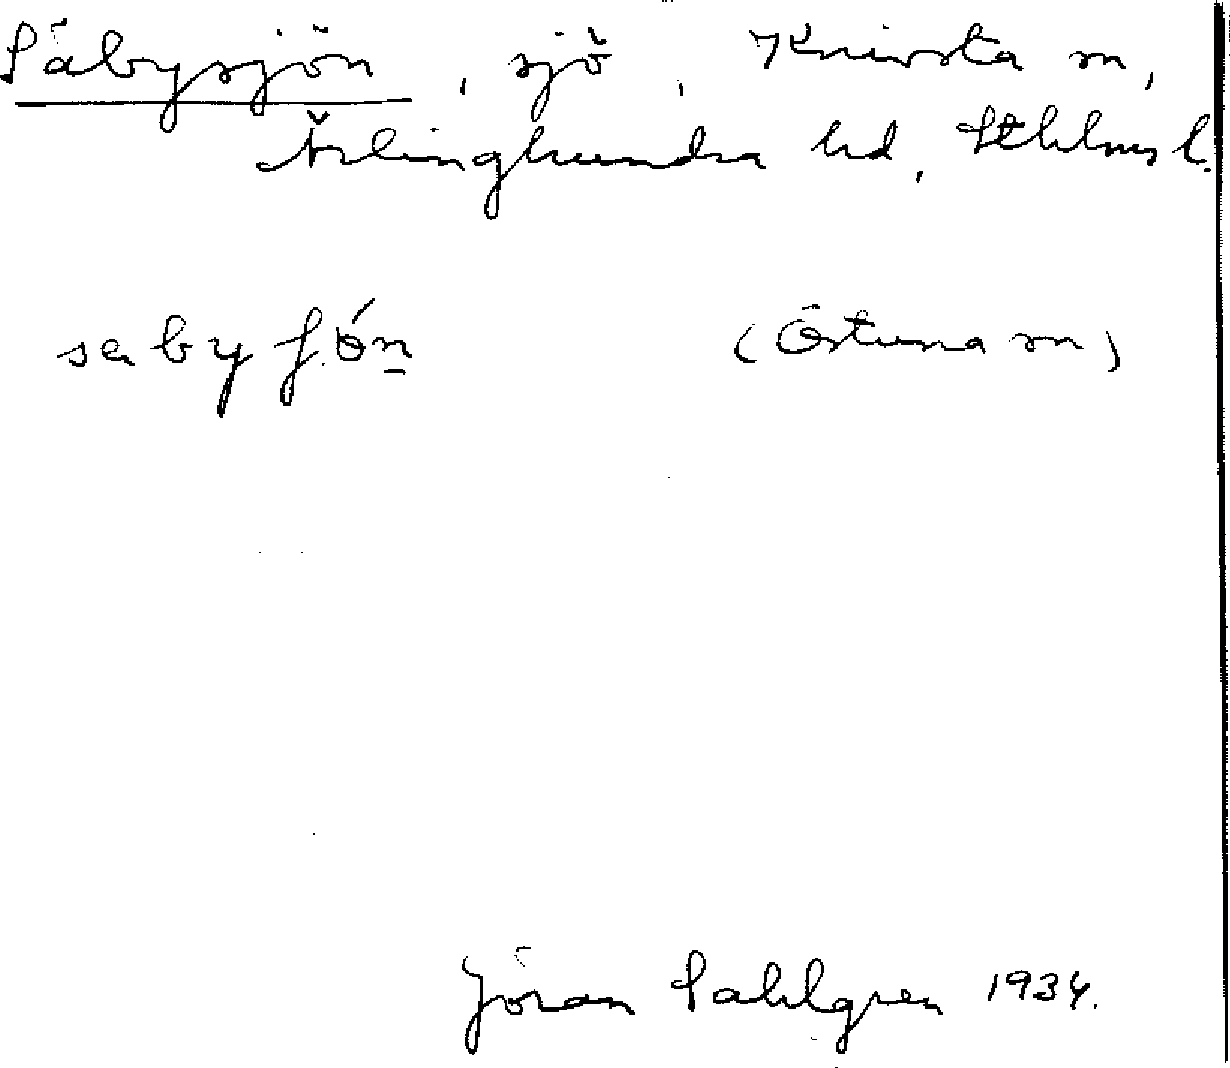 Säbysjön, sjö, Knivsta sn,
Ärlinghundra hd, Sthlms l.
(Östuna sn)
Jöran Sahlgren 1934.